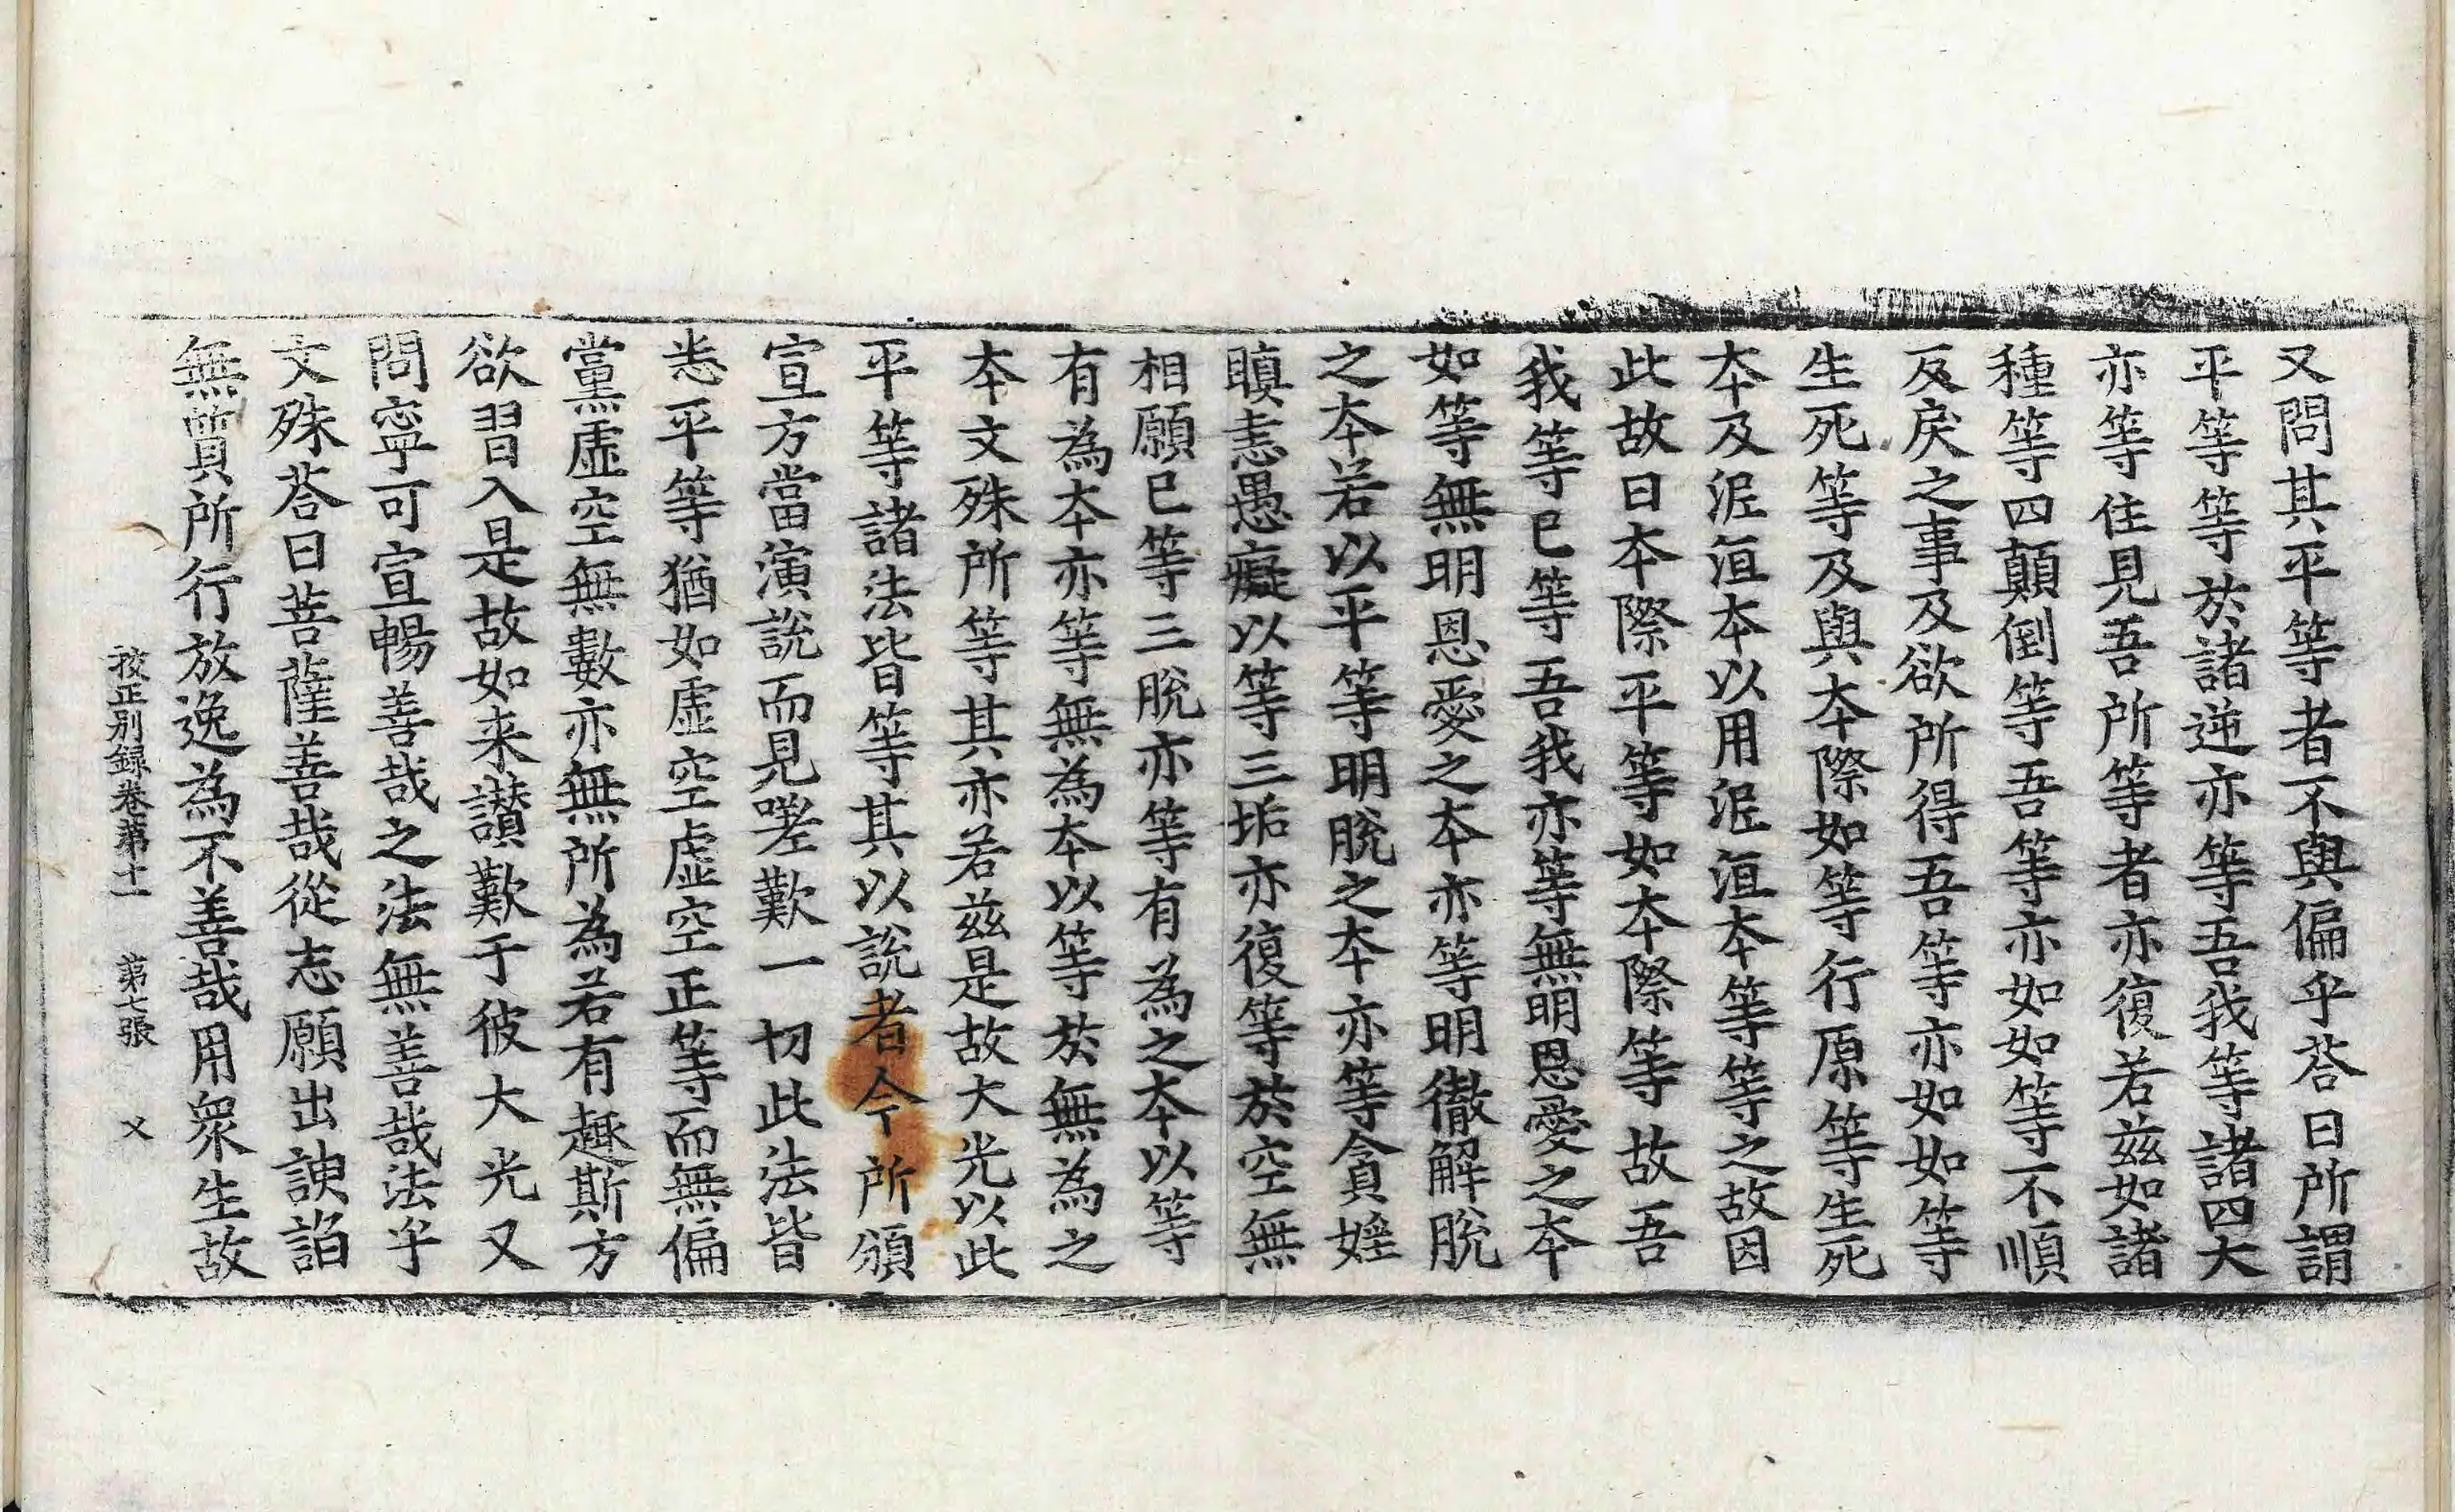 又問其平等者不與偏乎荅曰所謂
平等等於諸逆亦等吾我等諸四大
亦等住見吾所等者亦復若茲如諸
種等四顛倒等吾等亦如如等不順
反戾之事及欲所得吾等亦如如等
生死等及與本際如等行原等生死
本及泥洹本以用泥洹本等等之故因
此故曰本際平等如本際等故吾
我等已等吾我亦等無明恩愛之本
如等無明恩愛之本亦等明徹解脫
之本若以平等明脫之本亦等貪婬
瞋恚愚癡以等三垢亦復等於空無
相願已等三脫亦等有為之本以等
有為本亦等無為本以等於無為之
本文殊所等其亦若茲是故大光以此
平等諸法皆等其以說者今所頒
宣方當演說而見嗟歎一切此法皆
悉平等猶如虛空虛空正等而無偏
黨虛空無數亦無所為若有趣斯方
欲習入是故如来讃歎于彼大光又
問寧可宣暢善哉之法無善哉法乎
文殊荅曰菩薩善哉從志願出諛諂
無質所行放逸為不善哉用衆生故
挍正別録卷第十一 第七張 乂